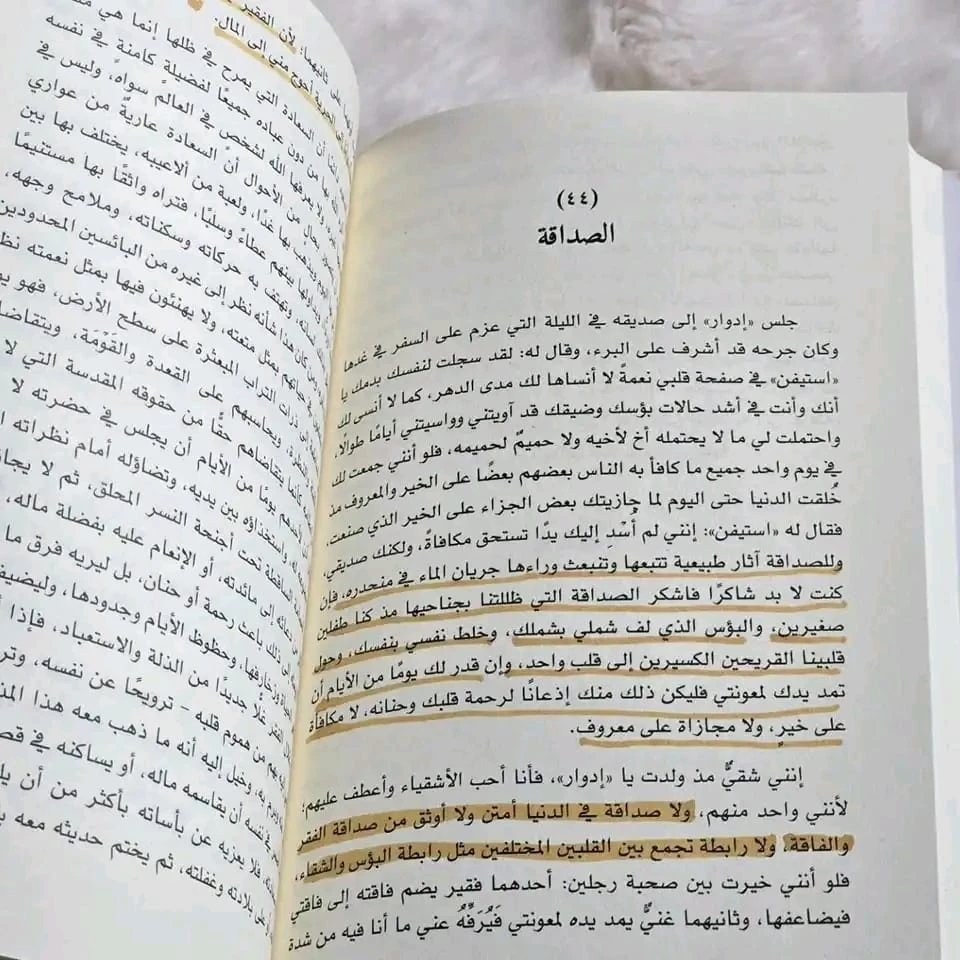 (٤٤)
الصداقة
جلس «إدوار» إلى صديقه في الليلة التي عزم على السفر في غدها
وكان جرحه قد أشرف على البرء، وقال له: لقد سجلت لنفسك بدمك يا
«استيفن» في صفحة قلبي نعمةً لا أنساها لك مدى الدهر، كما لا أنسى لك
أنك وأنت في أشد حالات بؤسك وضيقك قد آويتني وواسيتني أيامًا طوالًا،
واحتملت لي ما لا يحتمله أخ لأخيه ولا حميمٌ لحميمه، فلو أنني جمعت لك
في يوم واحد جميع ما كافأ به الناس بعضهم بعضًا على الخير والمعروف مذ
خُلقت الدنيا حتى اليوم لما جازيتك بعض الجزاء على الخير الذي صنعت،
فقال له «استيفن»: إنني لم أُسْدِ إليك يدًا تستحق مكافأةً، ولكنك صديقي،
وللصداقة آثار طبيعية تتبعها وتنبعث وراءها جريان الماء في منحدره، فإن
كنت لا بد شاكرًا فاشكر الصداقة التي ظللتنا بجناحيها مذ كنا طفلين
صغيرين، والبؤس الذي لف شملي بشملك، وخلط نفسي بنفسك، وحول
قلبينا القريحين الكسيرين إلى قلب واحد، وإن قدر لك يومًا من الأيام أن
تمد يدك لمعونتي فليكن ذلك منك إذعانًا لرحمة قلبك وحنانه، لا مكافأة
على خيرٍ، ولا مجازاة على معروف.
إنني شقيٌّ مذ ولدت يا «إدوار»، فأنا أحب الأشقياء وأعطف عليهم؛
لأنني واحد منهم، ولا صداقة في الدنيا أمتن ولا أوثق من صداقة الفقر
والفاقة، ولا رابطة تجمع بين القلبين المختلفين مثل رابطة البؤس والشقاء،
فلو أنني خيرت بين صحبة رجلين: أحدهما فقير يضم فاقته إلى فاقتي
فيضاعفها، وثانيهما غنيٌّ يمد يده لمعونتي فَيُرَفِّهُ عني ما أنا فيه من شدة
ثانيهما؛ لأن الفقير
أحوج مني إلى المال.
أن السعادة التي يمرح في ظلها إنما هي
من دون عباده جميعًا لفضيلة كامنة في نفسه
ولا يعرفها الله لشخص في العالم سواه، وليس في
بحالٍ من الأحوال أنَّ السعادة عاريةٌ من عواري
بها غدًا، ولعبة من ألاعيبه، يختلف بها بين
بينهم عطاءً وسلبًا، فتراه واثقًا بها مستنيمًا
وتهتف به حركاته وسكناته، وملامح وجهه،
كان هذا شأنه نظر إلى غيره من البائسين المحدودين
بمثل متعته، ولا يهنئون فيها بمثل نعمته
ذرات التراب المبعثرة على سطح الأرض، فهو
ويحاسبهم على القعدة والقَوْمَة، ويتقاضا
يتقاضاهم حقًا من حقوقه المقدسة التي لا
يومًا من الأيام أن يجلس في حضرته
واستخذاؤه بين يديه، وتضاؤله أمام نظراته
تحت أجنحة النسر المحلق، ثم لا
إلى مائدته، أو الإنعام عليه بفضلة ماله،
ذلك باعث رحمة أو حنان، بل ليريه فرق ما
وزخارفها، وحظوظ الأيام وجدودها، وليضيف
الفقر غلًّا جديدًا من الذلة والاستعباد، فإذا
من هموم قلبه – ترويحًا عن نفسه،
وخيل إليه أنه ما ذهب معه هذا
نفسه أن يقاسمه ماله، أو يساكنه في
فلا يعزيه عن بأسائه بأكثر من أن
بلادته وغفلته، ثم يختم حديثه معه